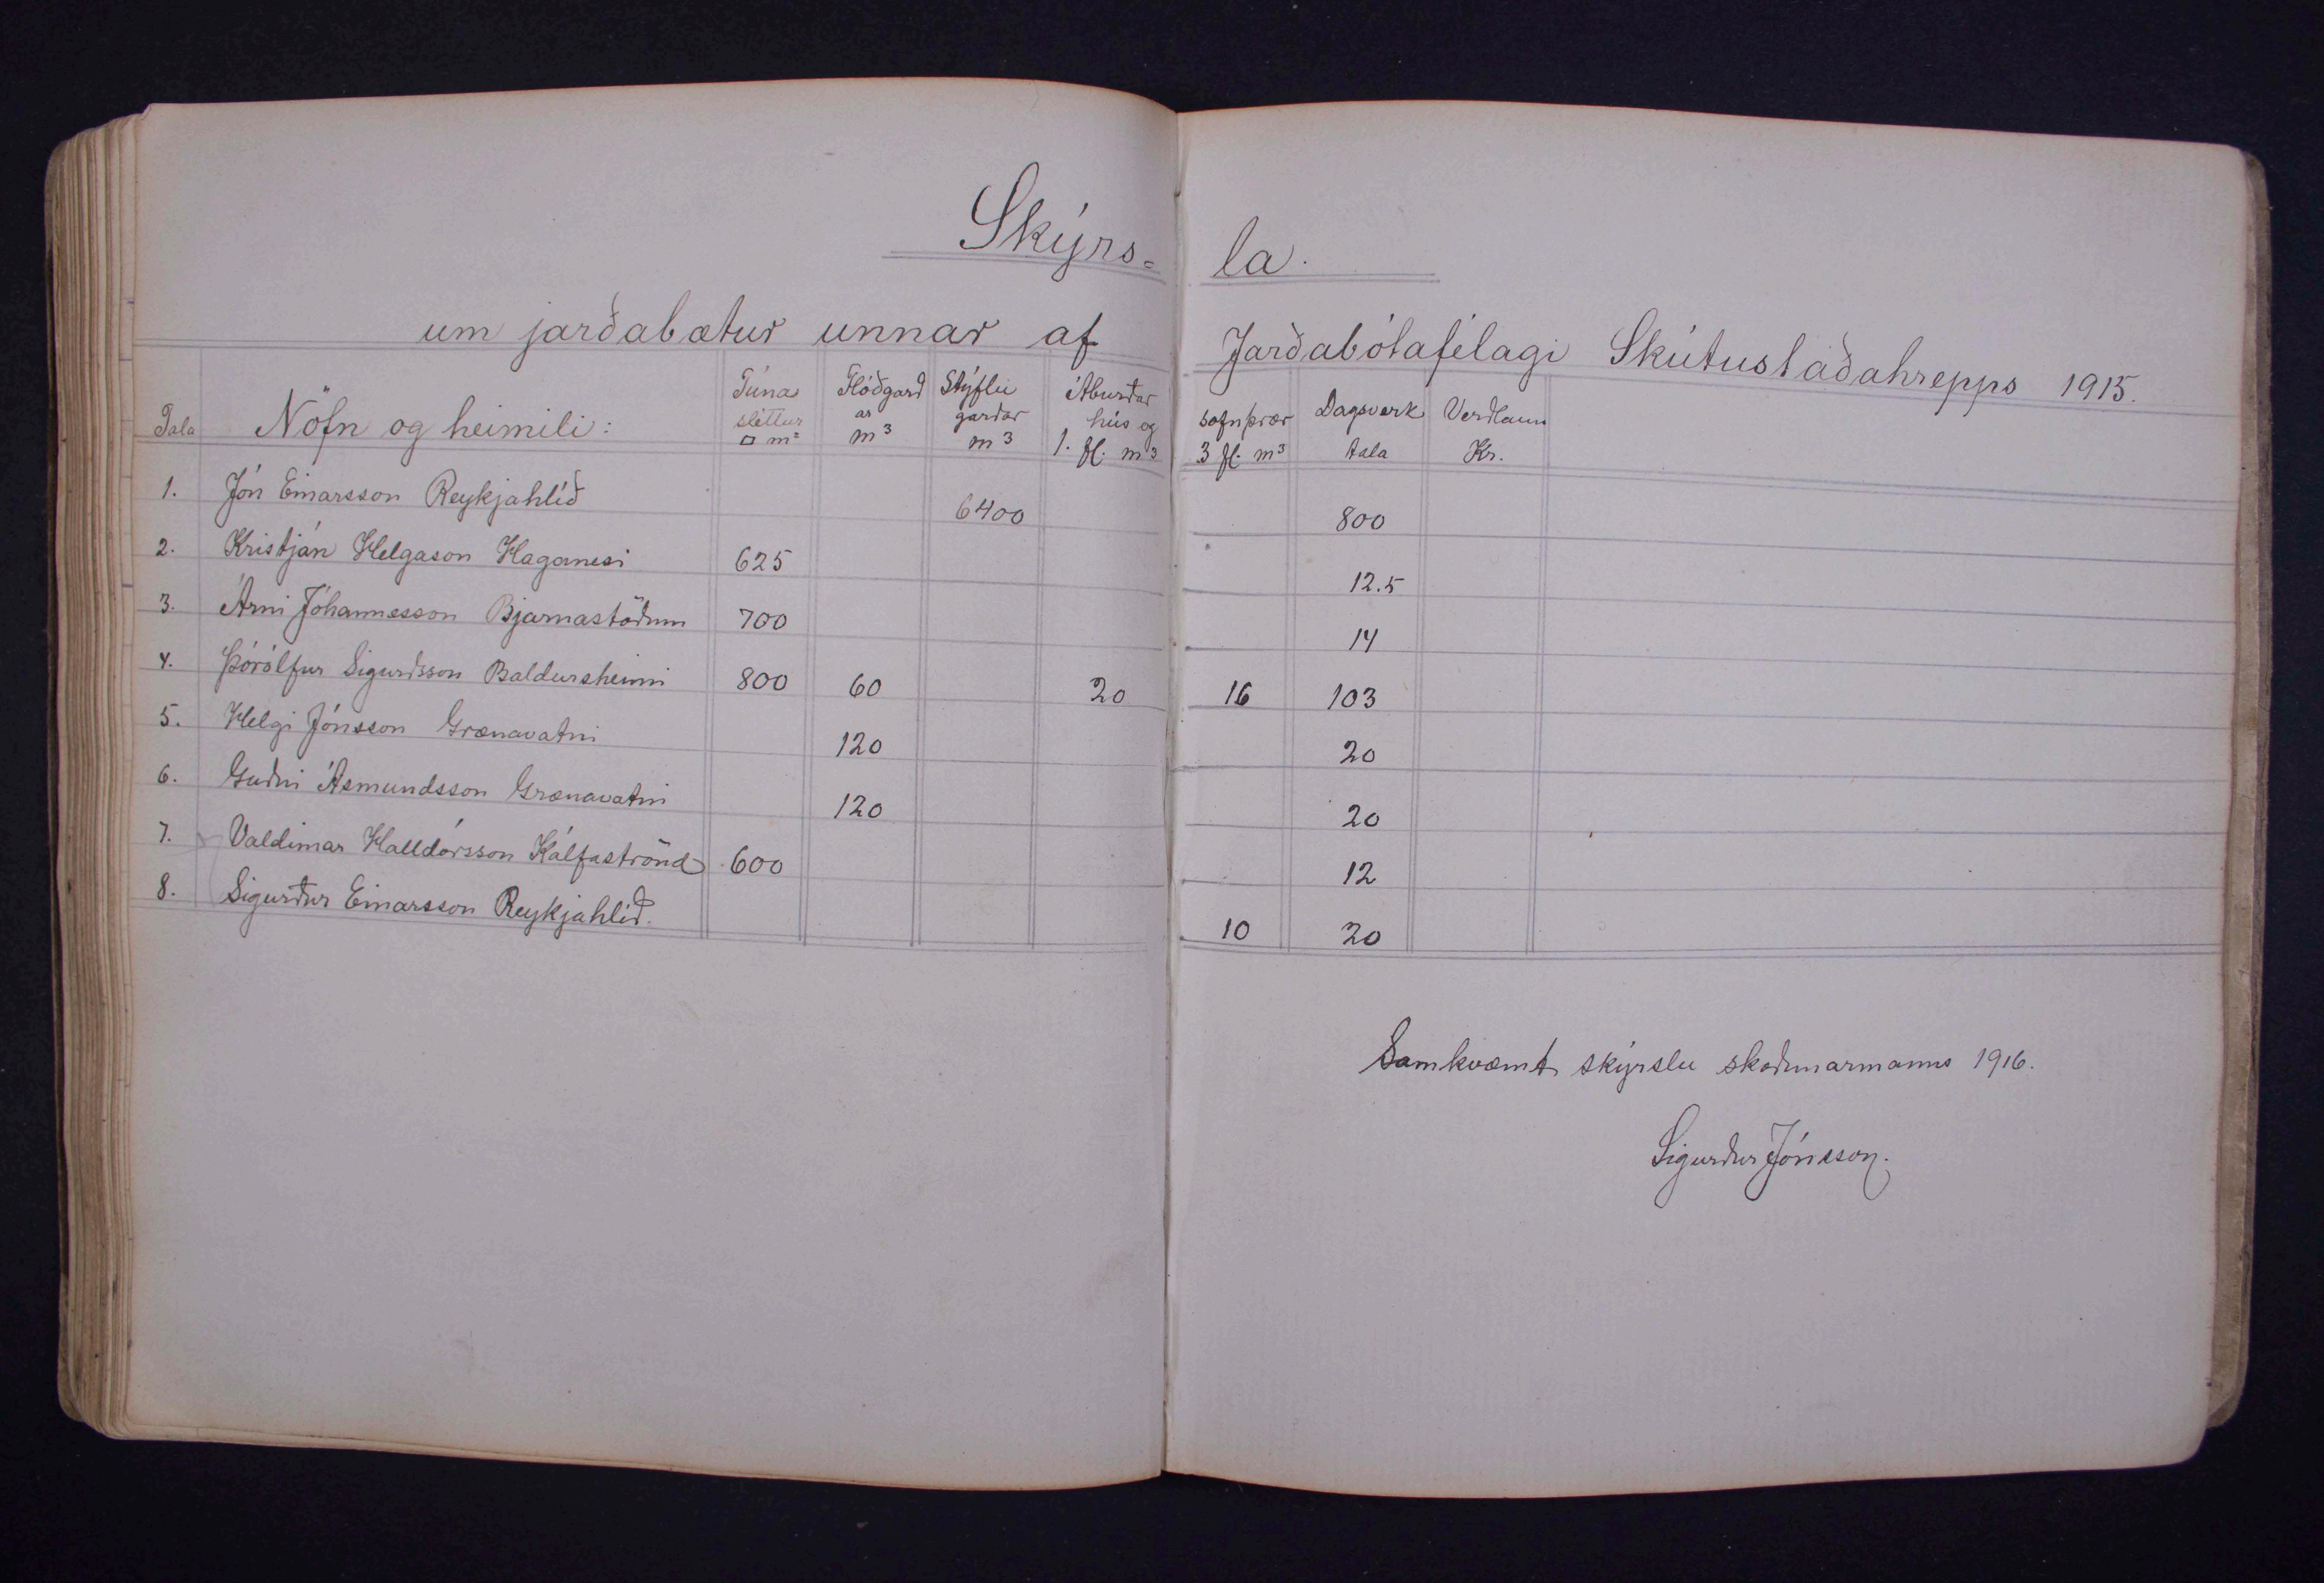 Skýrs= la.
um jarðabætur unnar af Jarðabótafélagi Skútustaðahrepps 1915.
Tala Nöfn og heimili: Túna sléttur □ m² Flóðgard ar m³ Stýflu garðar m³ Áburðar hús og 1. fl. m³ safnþrær 3 fl. m³ Dagsverk tala Verðlaun Kr.
1. Jón Einarsson Reykjahlíð 6400 800
2. Kristján Helgason Haganesi 625 12.5
3. Árni Jóhannesson Bjarnastöðum 700 14
4. Þórólfur Sigurðsson Baldursheimi 800 60 20 16 103
5. Helgi Jónsson Grænavatni 120 20
6. Guðni Ásmundsson Grænavatni 120 20
7. Valdimar Halldórsson Kálfaströnd 600 12
8. Sigurður Einarsson Reykjahlíð. 10 20
Samkvæmt skýrslu skoðunarmanns 1916.
Sigurður Jónsson.